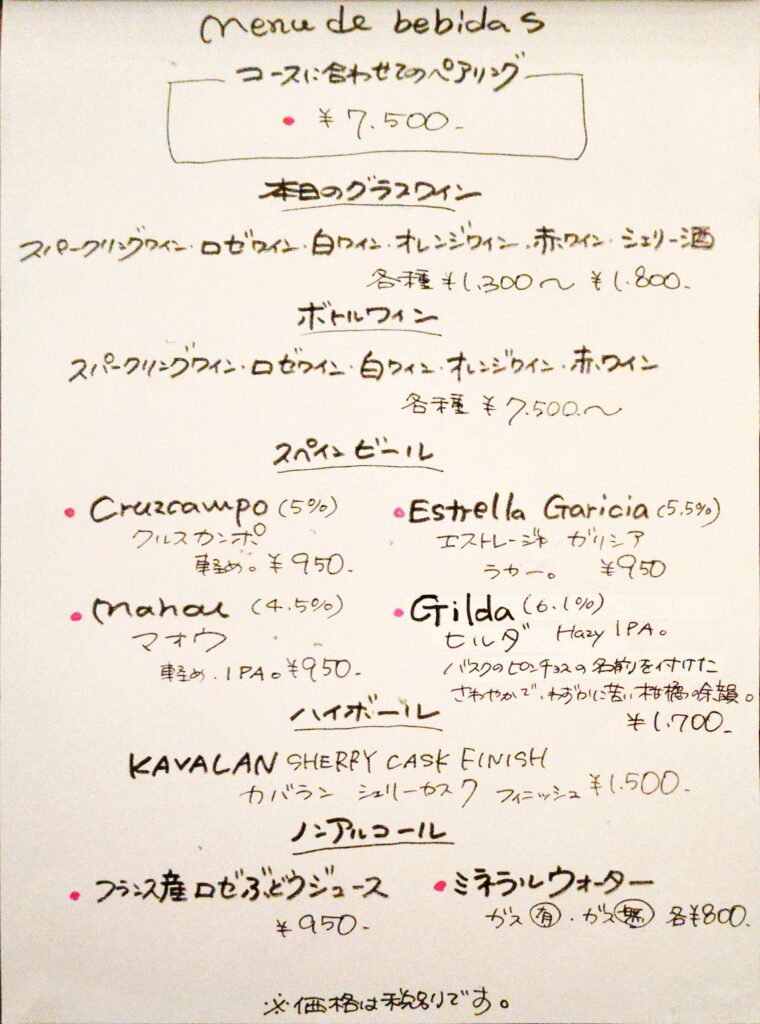 menu de bebidas
コースに合わせてのペアリング
• ¥7.500-
本日のグラスワイン
スパークリングワイン・ロゼワイン・白ワイン・オレンジワイン・赤ワイン・シェリー酒
各種 ¥1.300〜 ¥1.800-
ボトルワイン
スパークリングワイン・ロゼワイン・白ワイン・オレンジワイン・赤ワイン
各種 ¥7.500.〜
スペインビール
• Cruzcampo (5%)
クルスカンポ
軽め。¥950-
• Estrella Garicia (5.5%)
エストレージャ ガリシア
ラガー。 ¥950
• mahou (4.5%)
マオウ
軽め.IPA。¥950-
• Gilda (6.1%)
ヒルダ Hazy IPA。
バスクのピンチョスの名前を付けた
さわやかで、わずかに苦い柑橘の余韻。
¥1.700-
ハイボール
KAVALAN SHERRY CASK FINISH
カバラン シェリーカスク フィニッシュ ¥1.500-
ノンアルコール
• フランス産ロゼぶどうジュース
¥950-
• ミネラルウォーター
ガス有・ガス無 各¥800-
※価格は税別です。